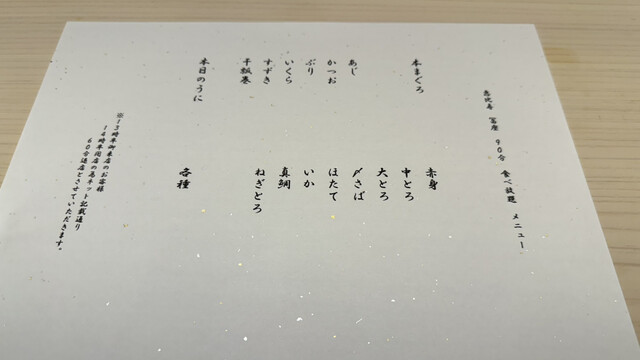 恵比寿 90分 食べ放題 メニュー
本まぐろ
赤身
中とろ
大とろ
あじ
〆さば
かつお
ほたて
ぶり
いか
いくら
真鯛
すずき
ねぎとろ
干瓢巻
本日のうに
各種
※13時半御来店のお客様
14時半閉店の為ネット記載通り
60分退店とさせていただきます。